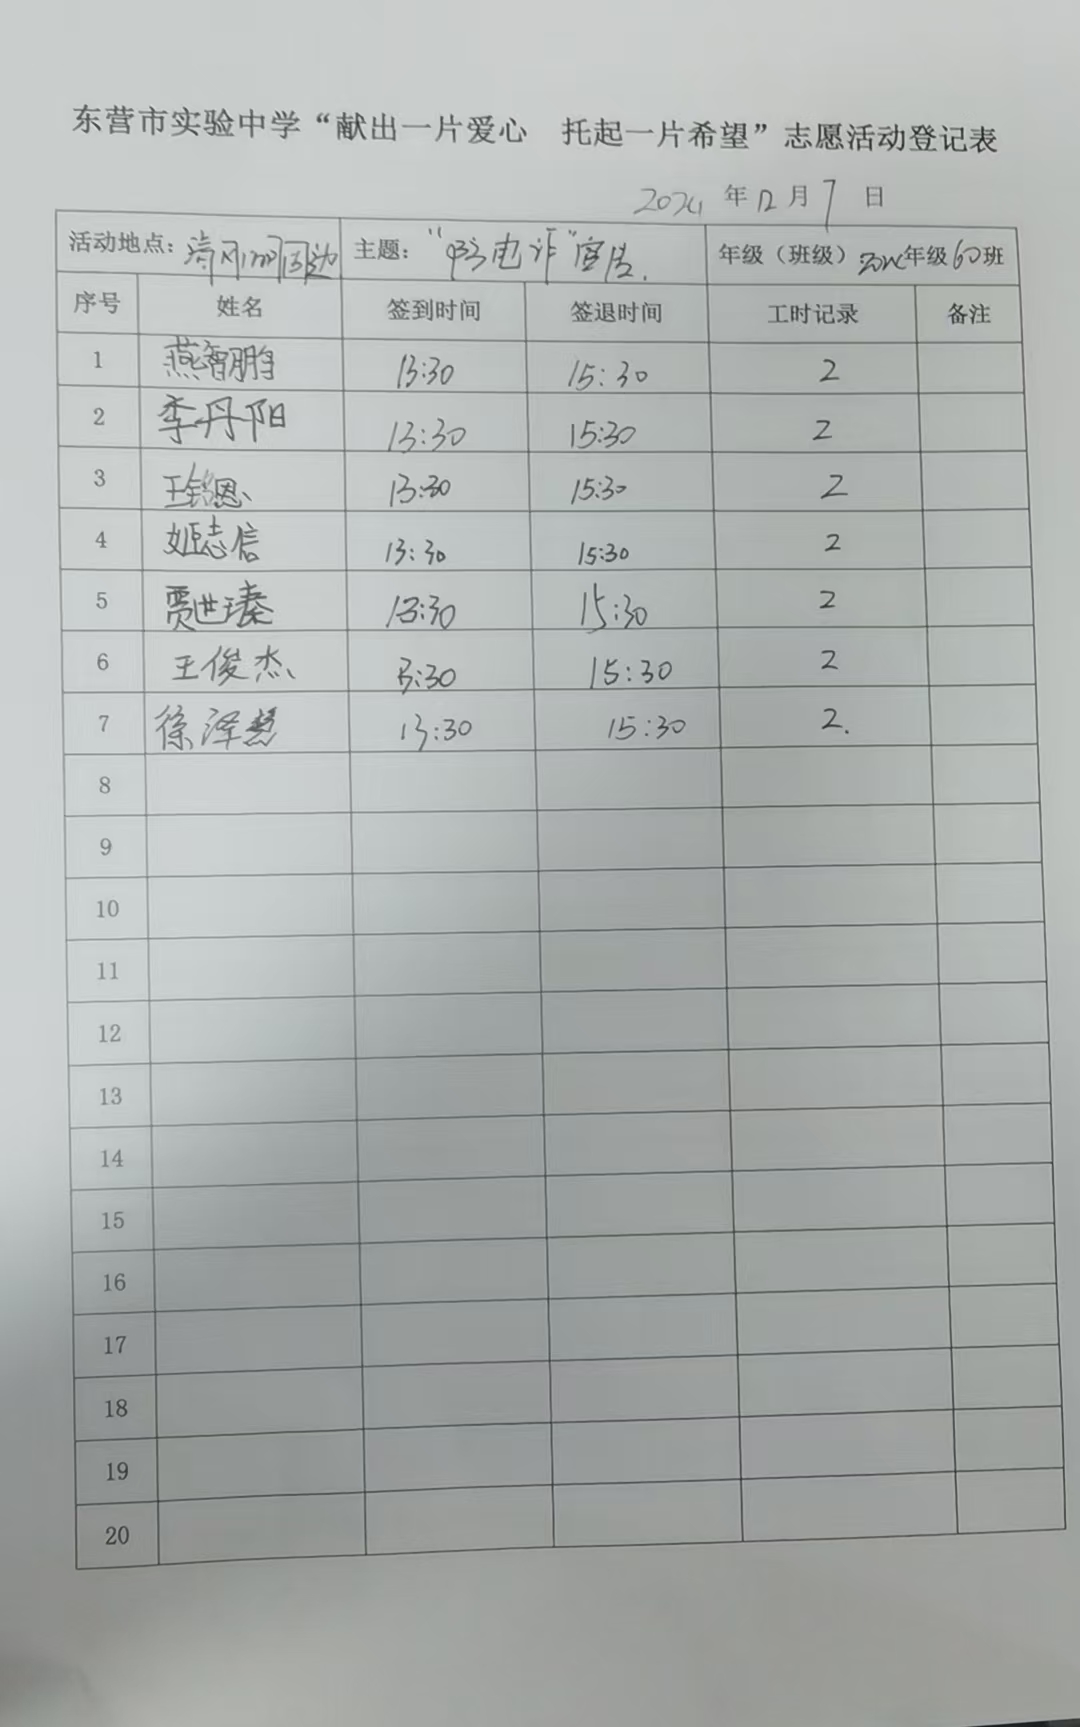 东营市实验中学“献出一片爱心 托起一片希望”志愿活动登记表
2024 年 12 月 7 日
活动地点: 清风湖周边 主题: “防电诈”宣传. 年级（班级）: 年级 60 班
序号 姓名 签到时间 签退时间 工时记录 备注
1 燕智鹏 13:30 15:30 2
2 李丹阳 13:30 15:30 2
3 王铭恩 13:30 15:30 2
4 姬志信 13:30 15:30 2
5 贾世瑧 13:30 15:30 2
6 王俊杰 13:30 15:30 2
7 徐泽慧 13:30 15:30 2.
8
9
10
11
12
13
14
15
16
17
18
19
20